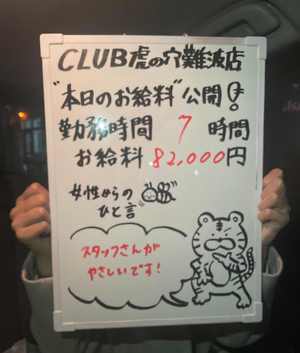 CLUB虎の穴難波店
"本日のお給料"公開!
勤務時間 7 時間
お給料 82,000円
女性からの
ひと言
スタッフさんが
やさしいです!